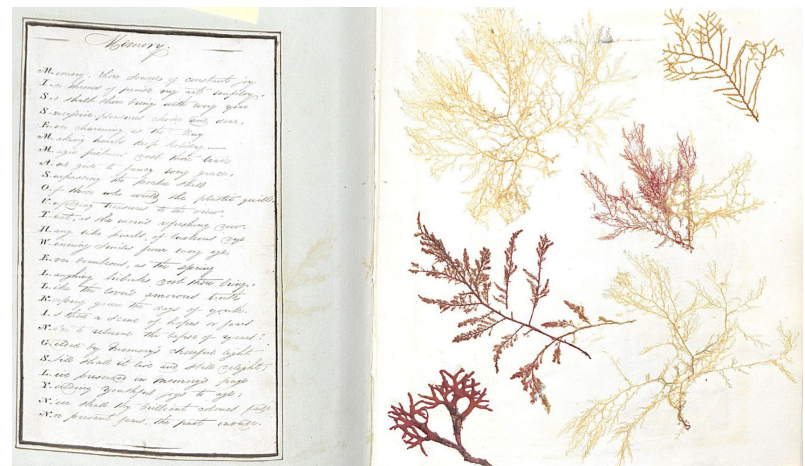 Memory.
Memory, thou source of constant joy
In themes of praise my arts employ,
So shalt thou bring with every year
Successive pleasures choice and dear,
Ever charming as the May
Making hearts keep holiday
Magic pictures
As give to fancy every grace,
Surpassing the poet's skill
Of those who wield the plastic quill
to the view
That, as the moon's refreshing
Hang like pearls of
Winning smiles from every eye,
Even as the spring
Laughing tributes shalt thou bring,
Like the lovely amorous birds
Keeping green the days of youth.
Is there a sense of hopes or fears
Ne'er to relieve the lapse of years?
Gilded by memory's cheerful light
Still shall it live and still delight;
Live preserved in memory's page
Yielding youthful joys to age;
Ne'er shall thy brilliant colours fade
Nor present fears, the past invade.